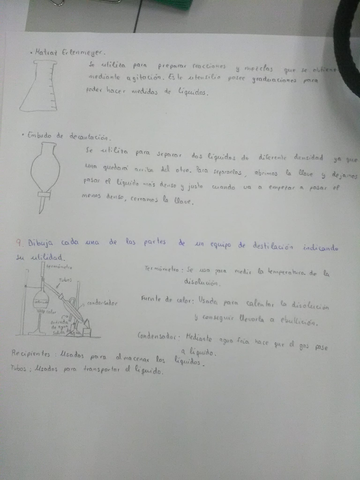 • Matraz Erlenmeyer.
Se utiliza para preparar reacciones y mezclas que se
mediante agitación. Este utensilio posee graduaciones para
poder hacer medidas de líquidos.
• Embudo de decantación.
Se utiliza para separar dos líquidos de diferente densidad ya que
uno quedará arriba del otro, para separarlos, abrimos la llave y dejamos
pasar el líquido más denso y justo cuando va a empezar a pasar el
menos denso, cerramos la llave.
9. Dibuja cada una de las partes de un equipo de destilación indicando
su utilidad.
termómetro
tubos
condensador
Termómetro - Se usa para medir la temperatura de la
disolución.
Fuente de calor: Usada para calentar la disolución
y conseguir llevarla a ebullición.
Condensador - Mediante agua fría hace que el gas pase
a líquido.
Recipientes: Usados para almacenar los líquidos.
Tubos: Usados para transportar el líquido.